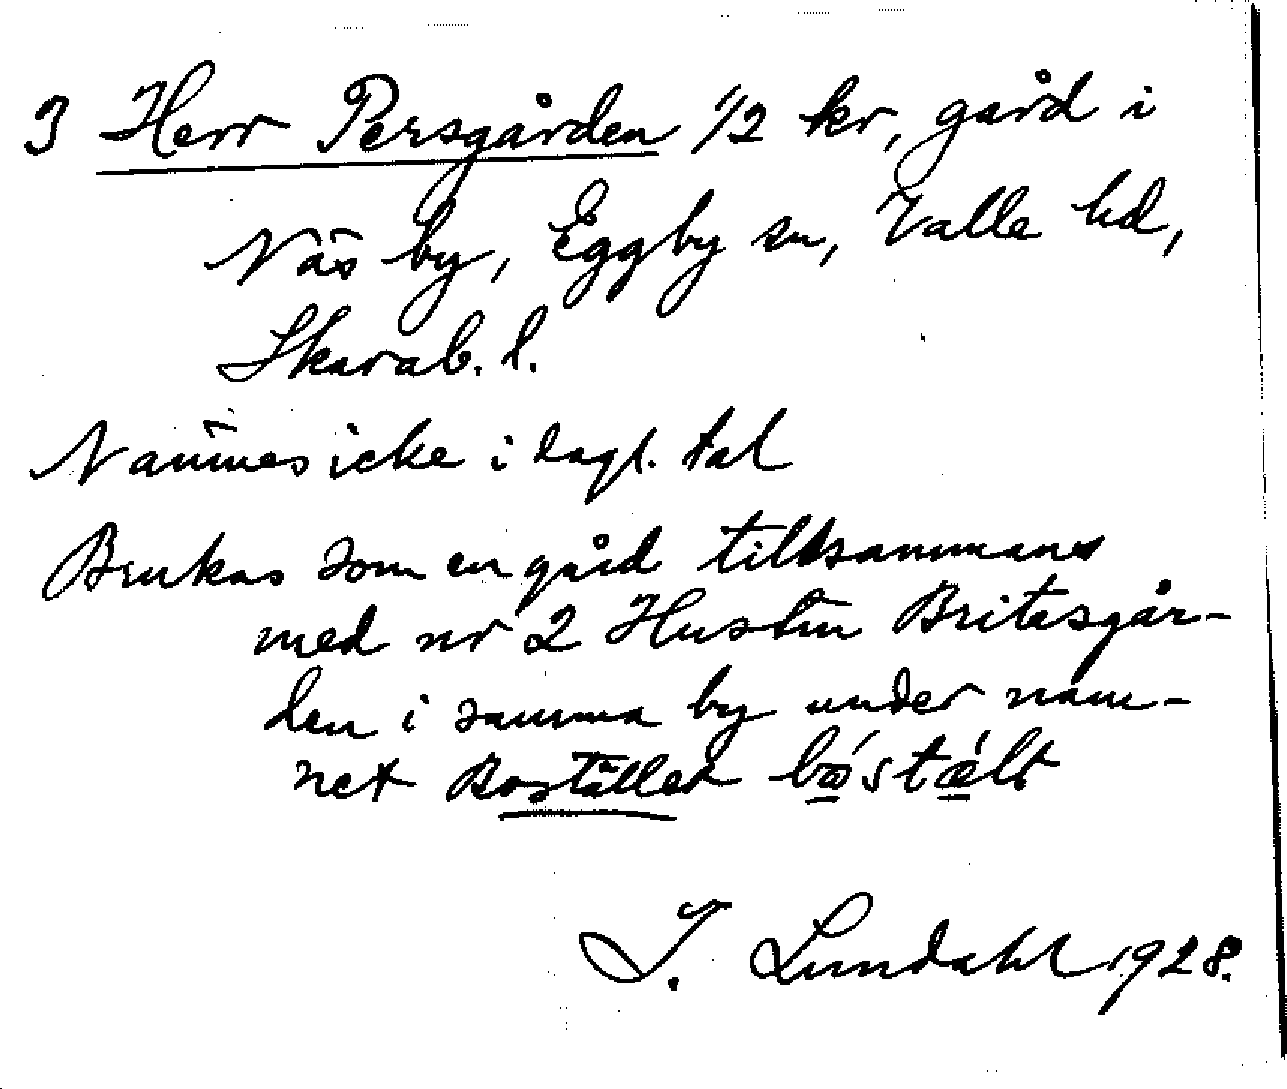 3 Herr Persgården 1/2 kr, gård i
Näs by, Eggby sn, Valle hd,
Skarab. l.
Nämnes icke i dagl. tal
Brukas som en gård tillsammans
med nr 2 Hustru Britasgår-
den i samma by under nam-
net Bostället
I. Lundahl 1928.